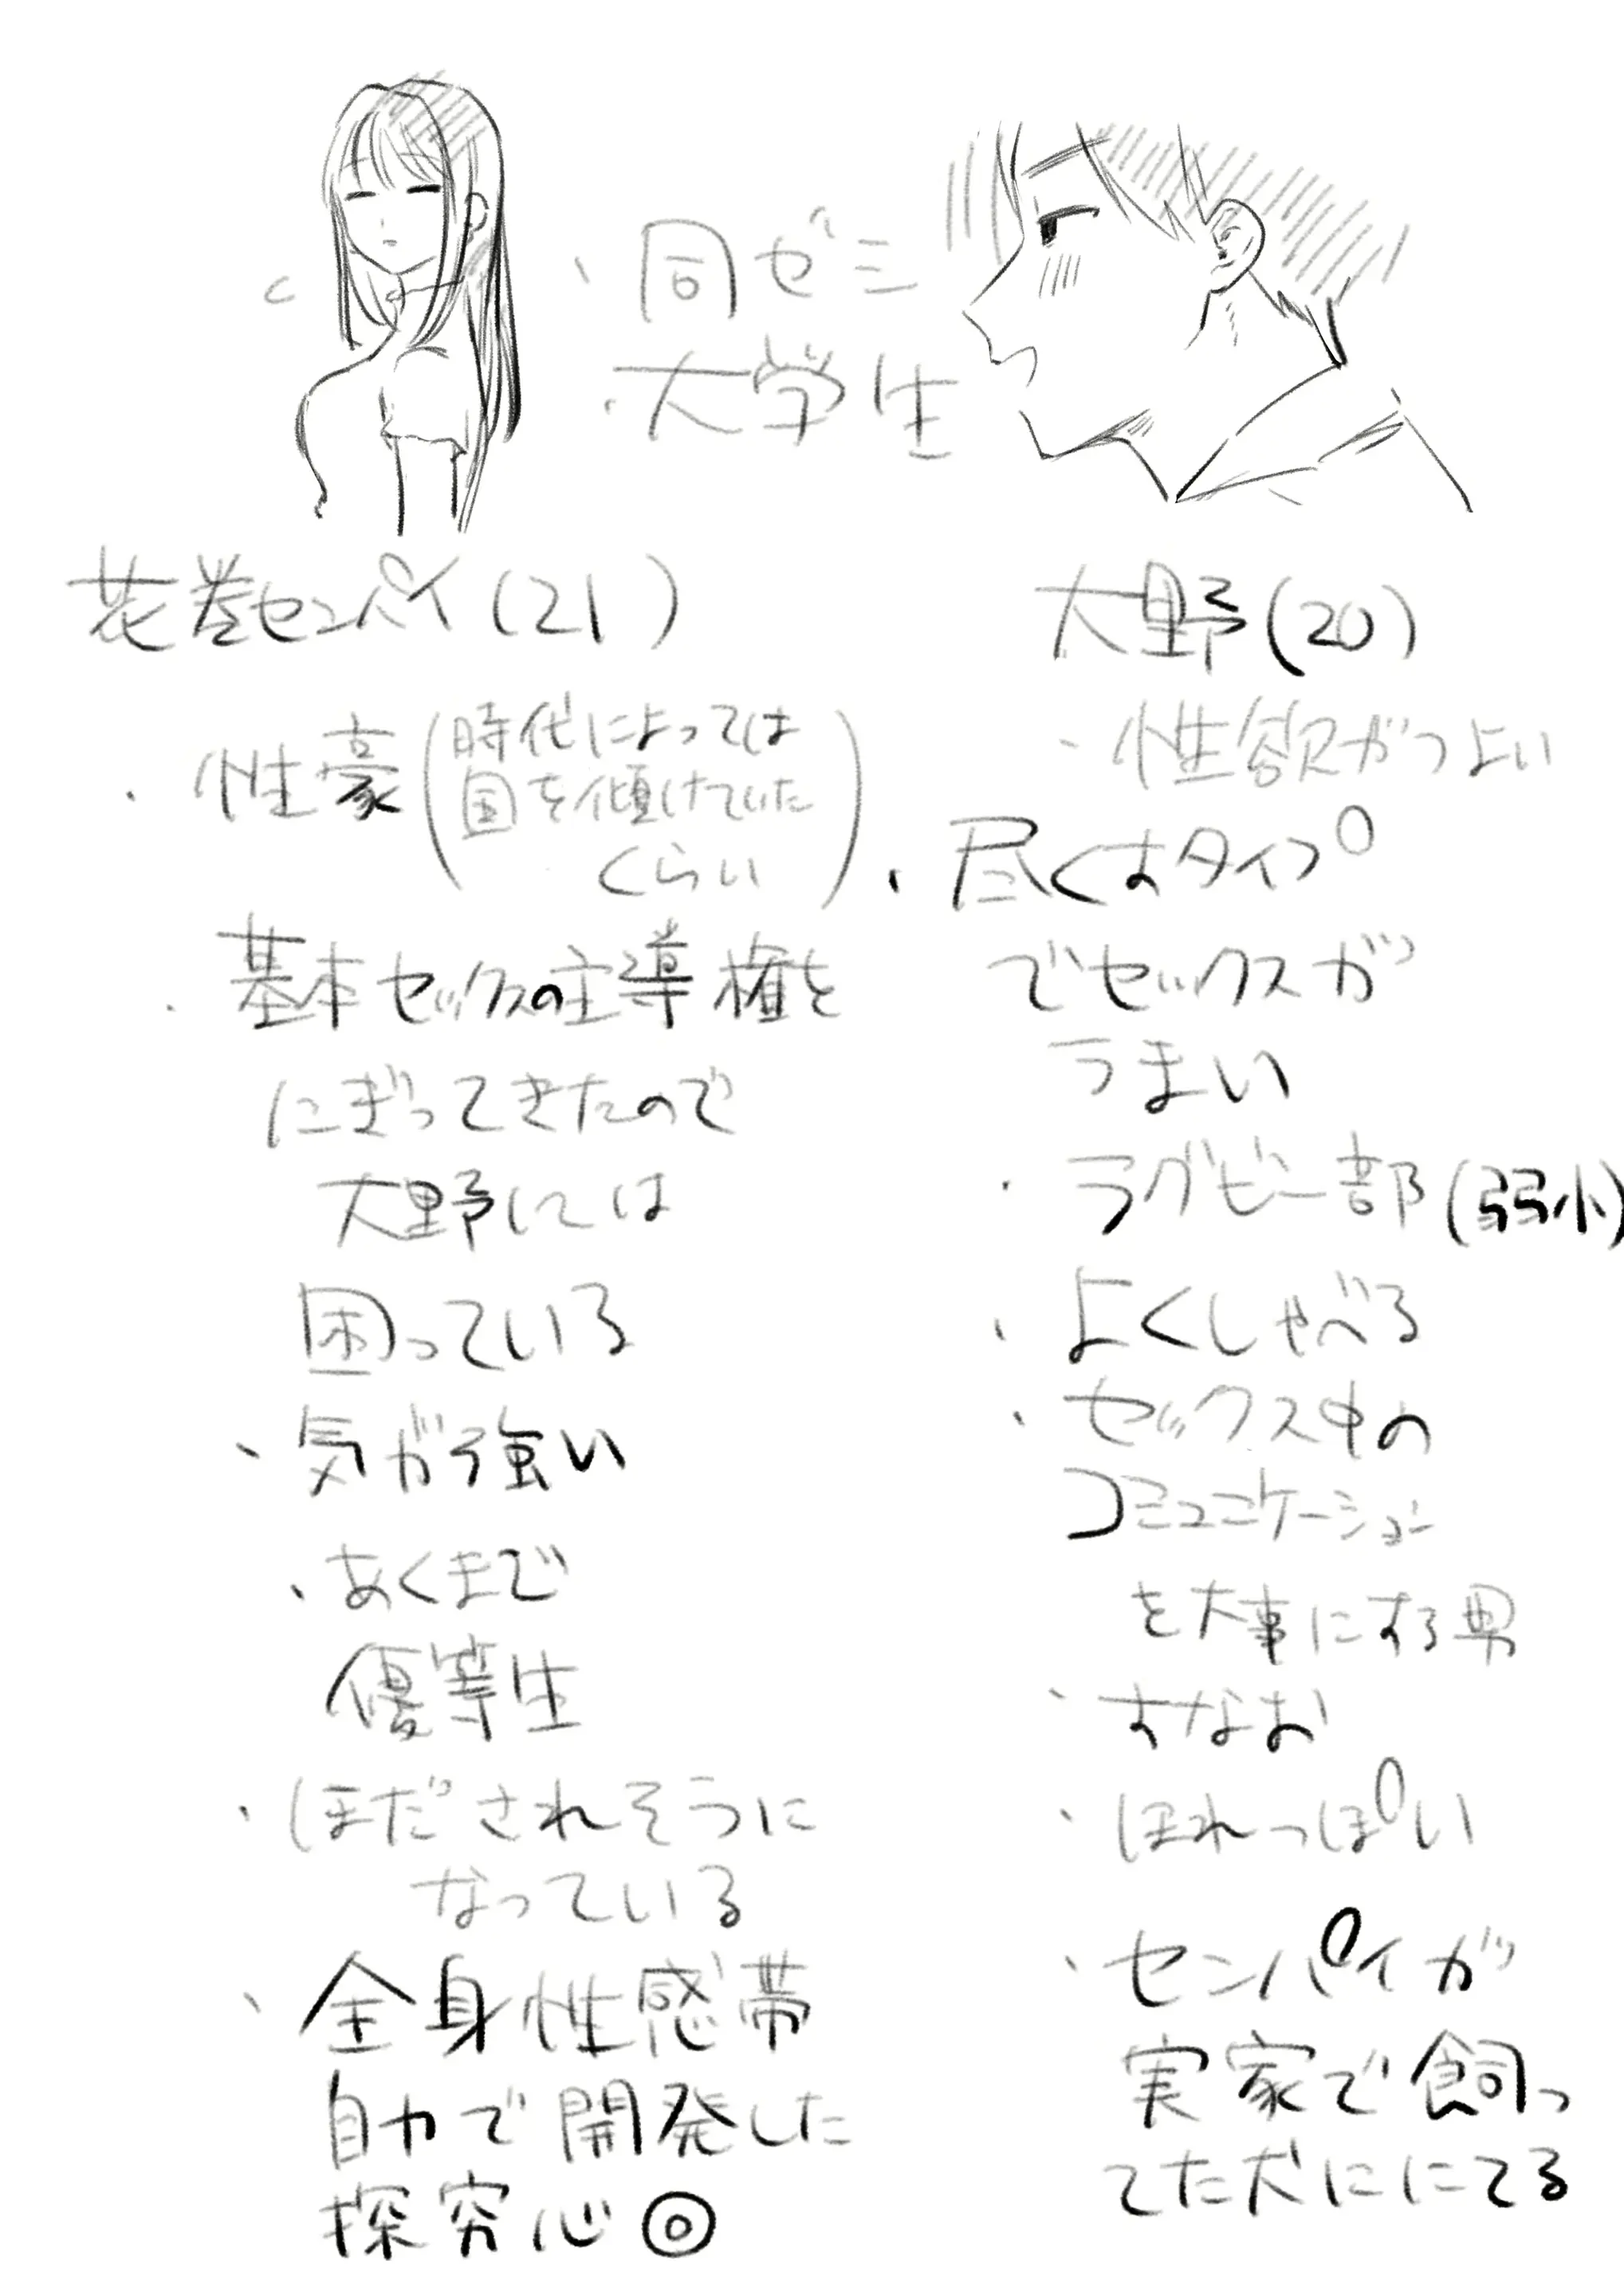 ・同ゼミ
・大学生
花巻センパイ(21)
・性豪(時代によっては
国を傾けていた
くらい)
・基本セックスの主導権を
にぎってきたので
大野には
困っている
・気が強い
・あくまで
優等生
・ほだされそうに
なっている
・全身性感帯
自力で開発した
探究心◎
大野(20)
・性欲がつよい
・尽くすタイプ
でセックスが
うまい
・ラグビー部(弱小)
・よくしゃべる
・セックス中の
コミュニケーション
を大事にする男
・すなお
・ほれっぽい
・センパイが
実家で飼っ
てた犬ににてる